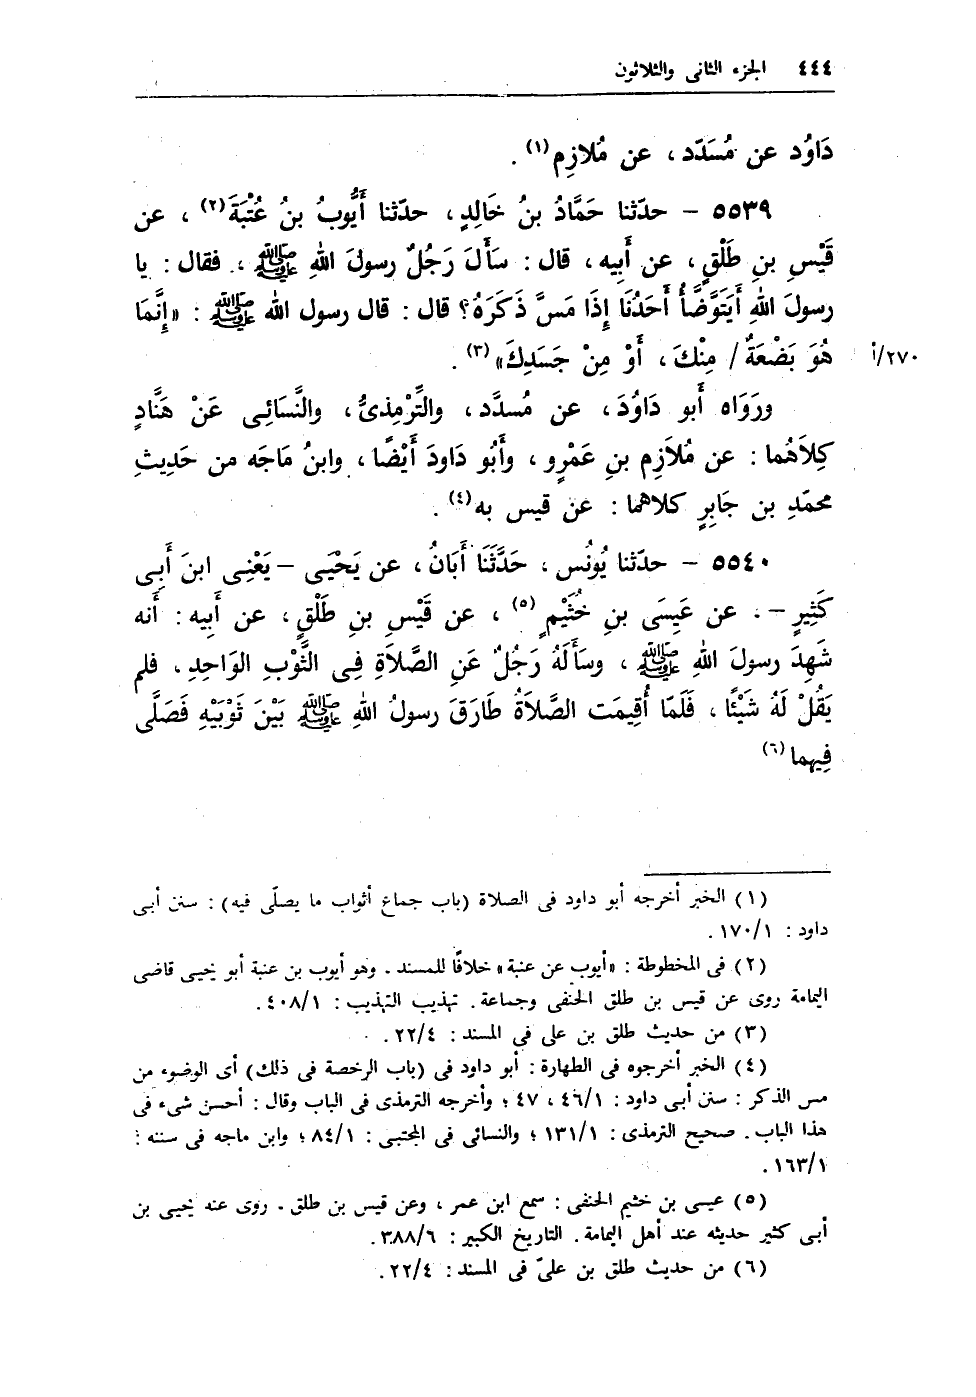 ٤٤٤ الجزء الثانى والثلاثون
دَاوُد عن مُسَدَّد ، عن مُلازِم(١) .
٥٥٣٩ – حدّثنا حَمَّادُ بنُ خَالِدٍ ، حدّثنا أَيُّوبُ بنُ عُتْبَةَ(٢) ، عن
قَيْسِ بنِ طَلْقٍ ، عن أَبِيه ، قال : سَأَلَ رَجُلٌ رسولَ اللهِ ﷺ ، فقال : يا
رسولَ اللهِ أَيَتَوَضَّأُ أَحَدُنَا إِذَا مَسَّ ذَكَرَهُ؟ قال : قال رسول الله ﷺ : «إِنَّمَا
هُوَ بَضْعَةٌ / مِنْكَ ، أَوْ مِنْ جَسَدِكَ»(٣) .
٢٧٠/أ
ورَوَاه أبو دَاوُدَ ، عن مُسدَّد ، والتِّرْمِذىُّ ، والنَّسَائِى عَنْ هَنَّادٍ
كِلاَهُما : عن مُلاَزِم بنِ عَمْرٍو ، وأَبُو دَاودَ أَيْضًا ، وابنُ مَاجَه من حَدِيثِ
محمّدِ بن جَابِرٍ كلاهما : عن قيس به(٤) .
٥٥٤٠ – حدّثنا يُونُس ، حَدَّثَنَا أَبَانُ ، عن يَحْيَى – يَعْنِى ابنَ أَبِى
كَثِيرٍ – . عن عَيِسَى بنِ خُثَيْمٍ(٥) ، عن قَيْسِ بنِ طَلْقٍ ، عن أَبِيه : أنه
شَهِدَ رسولَ اللهِ ﷺ ، وسَأَلَهُ رَجُلٌ عَنِ الصَّلاَةِ فِى الثَّوْبِ الوَاحِدِ ، فلم
يَقُلْ لَهُ شَيْئًا ، فَلَمَّا أُقِيمَت الصَّلاَةُ طَارَقَ رسولُ اللهِ ﷺ بَيْنَ ثَوْبَيْهِ فَصَلَّى
فِيهما(٦)
(١) الخبر أخرجه أبو داود فى الصلاة (باب جماع أثواب ما يصلّى فيه) : سنن أبى
داود : ١/١٧٠ .
(٢) فى المخطوطة : «أيوب عن عنبة» خلافًا للمسند . وهو أيوب بن عتبة أبو يحيى قاضى
اليمامة روى عن قيس بن طلق الحنفى وجماعة . تهذيب التهذيب : ١/٤٠٨ .
(٣) من حديث طلق بن على فى المسند : ٤/٢٢ .
(٤) الخبر أخرجوه فى الطهارة : أبو داود فى (باب الرخصة فى ذلك) أى الوضوء من
مس الذكر : سنن أبى داود : ١/٤٦ ، ٤٧ ؛ وأخرجه الترمذى فى الباب وقال : أحسن شىء فى
هذا الباب . صحيح الترمذى : ١/١٣١ ؛ والنسائى فى المجتبى : ١/٨٤ ؛ وابن ماجه فى سننه :
١/١٦٣ .
(٥) عيسى بن خثيم الحنفى : سمع ابن عمر ، وعن قيس بن طلق . روى عنه يحيى بن
أبى كثير حديثه عند أهل اليمامة . التاريخ الكبير : ٦/٣٨٨ .
(٦) من حديث طلق بن علىّ فى المسند : ٤/٢٢ .